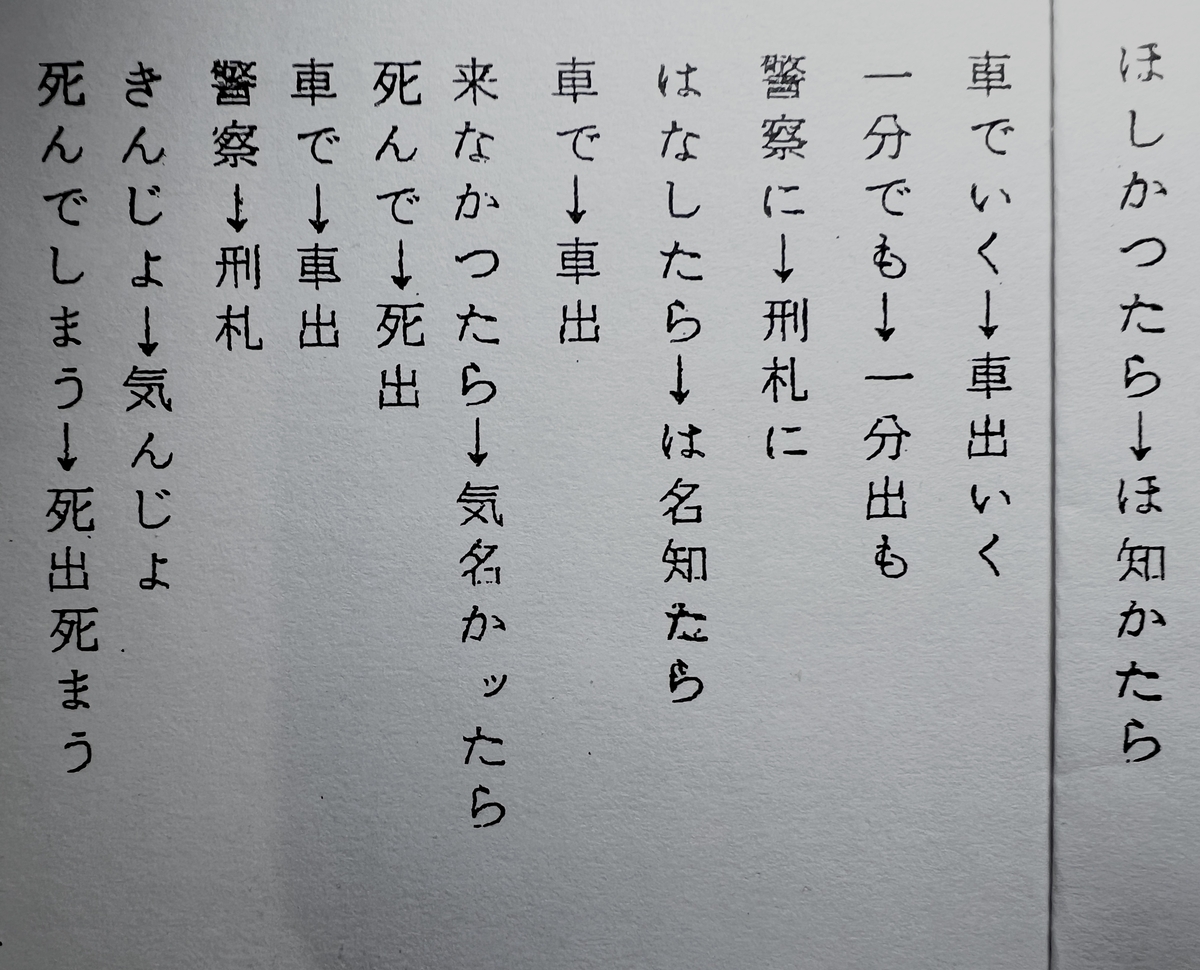 ほしかつたら→ほ知かたら
車でいく→車出いく
一分でも→一分出も
警察に→刑札に
はなしたら→は名知たら
車で→車出
来なかつたら→気名かッたら
死んで→死出
車で→車出
警察→刑札
きんじよ→気んじよ
死んでしまう→死出死まう